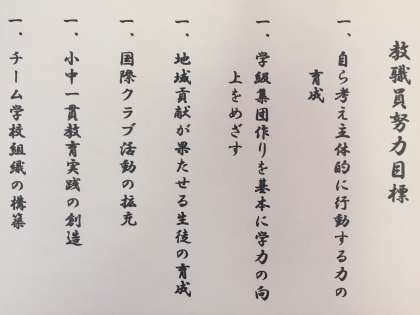 教職員努力目標
一、自ら考え主体的に行動する力の
育成
一、学級集団作りを基本に学力の向
上をめざす
一、地域貢献が果たせる生徒の育成
一、国際クラブ活動の拡充
一、小中一貫教育実践の創造
一、チーム学校組織の構築